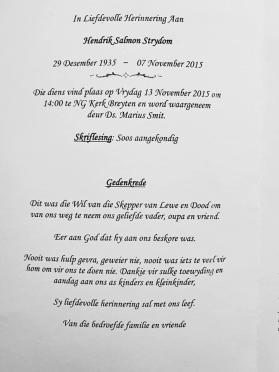 In Liefdevolle Herinnering Aan
Hendrik Salmon Strydom
29 Desember 1935 – 07 November 2015
Die diens vind plaas op Vrydag 13 November 2015 om
14:00 te NG Kerk Breyten en word waargeneem
deur Ds. Marius Smit.
Skriflesing: Soos aangekondig
Gedenkrede
Dit was die Wil van die Skepper van Lewe en Dood om
van ons weg te neem ons geliefde vader, oupa en vriend.
Eer aan God dat hy aan ons beskore was.
Nooit was hulp gevra, geweier nie, nooit was iets te veel vir
hom om vir ons te doen nie. Dankie vir sulke toewyding en
aandag aan ons as kinders en kleinkinder,
Sy liefdevolle herinnering sal met ons leef.
Van die bedroefde familie en vriende